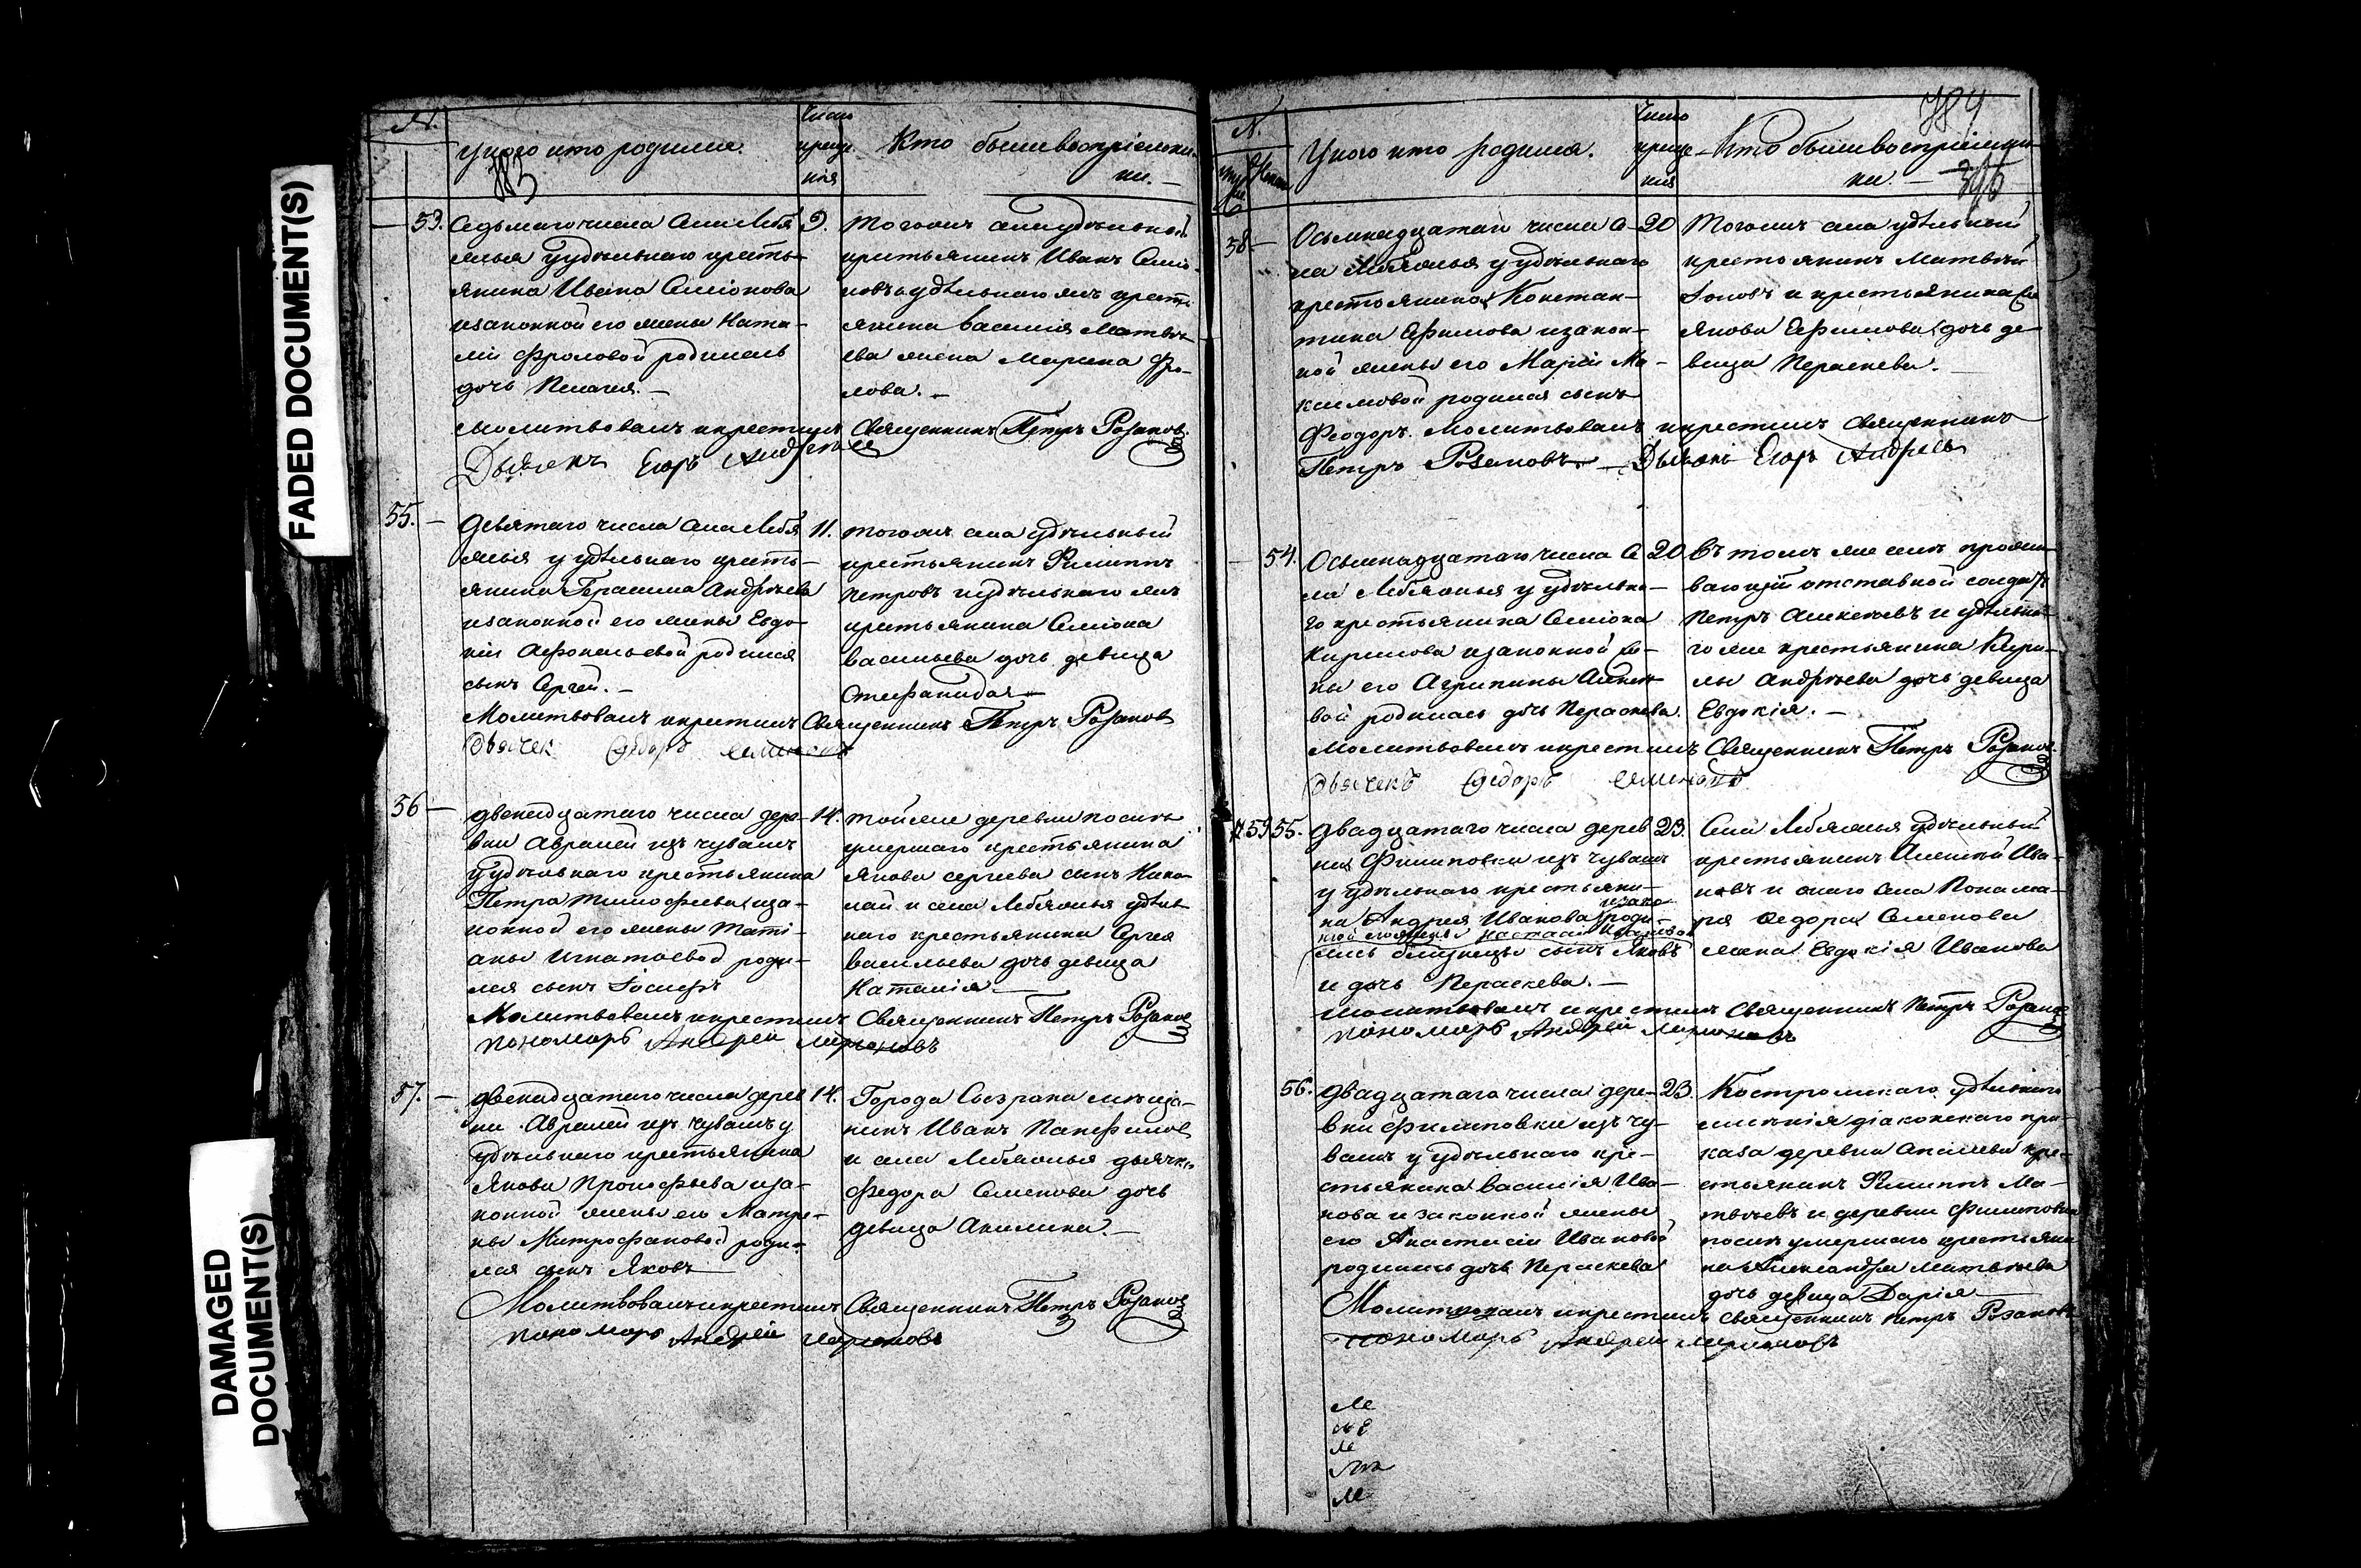 FADED DOCUMENT(S)
DAMAGED DOCUMENT(S)
№.
У кого кто родился.
Число
креще
ния
Кто были воспріемни
ки. —
53.
Седьмаго числа села Лебя
жья у удѣльнаго кресть-
янина Ивана Семіонова
и законной его жены Ната-
ліи Фроловой родилась
дочь Пелагея. —
9.
Тогожъ села удѣльной
крестьянинъ Иванъ Семіо-
новъ и удѣльнагожъ кресть-
янина Василія Матвѣ-
ева жена Марина Фро-
лова. —
Молитвовалъ и крестилъ Священникъ Петръ Розановъ
Дьячекъ Егоръ Андреевъ
55. —
Девятаго числа села Лебя
жья у удѣльнаго кресть-
янина Герасима Андрѣева
и законной его жены Евдо-
кіи родился
сынъ Сергей. —
11.
Тогожъ села удѣльный
крестьянинъ Филиппъ
Петровъ и удѣльнаго жъ
крестьянина Семіона
Васильева дочь девица
Стефанида —
Молитвовалъ и крестилъ Священникъ Петръ Розановъ
Дьячек Федоръ Семеновъ
56 —
Двенадцатаго числа дере-
вни Авралей изъ чувашъ
у удѣльнаго крестьянина
Петра Тимофеева и за-
конной его жены Тати-
аны Игнатьевой роди-
лся сынъ Іосифъ
14.
Той же деревни послѣ
умершаго крестьянина
Якова Сергѣева сынъ Нико-
лай и села Лебяжья удѣль-
наго крестьянина Сергея
Васильева дочь девица
Наталія —
Молитвовалъ и крестилъ Священникъ Петръ Розановъ
Пономарь Андрей Ларионовъ
57. —
Двенадцатаго числа дерев
ни Авралей изъ чувашъ у
удѣльнаго крестьянина
Якова Прокофьева и за-
конной жены его Матре-
ны Митрофановой роди-
лся сынъ Яковъ —
14.
Города Сызрана мѣща-
нинъ Иванъ Панфиловъ
и села Лебяжья дьячка
Федора Семенова дочь
девица Акилина. —
Молитвовалъ и крестилъ Священникъ Петръ Розановъ
Пономарь Андрей Ларионовъ
№.
У кого кто родился.
Число
креще
ния
Кто были воспріемни-
ки. —
58 —
Осьмнадцатаго числа се-
ла Лебяжья у удѣльнаго
крестьянина Констан-
тина Ефимова и закон-
ной жены его Маріи Ма-
ксимовой родился сынъ
Феодоръ. Молитвовалъ и крестилъ Священникъ
Петръ Розановъ. — Дьячокъ Егоръ Андреевъ
20
Тогожъ села удѣльный
крестьянинъ Матвѣй
Іоновъ и крестьянина
Якова Ефимова дочь де-
вица Параскева. —
54.
Осьмнадцатаго числа се
ла Лебяжья у удѣльна-
го крестьянина Семіона
Кирилова и законной же-
ны его Агрипины Алексе-
вой родилась дочь Параскева.
20
Въ томъ же селе прожи-
вающій отставной солдатъ
Петръ Алексѣевъ и удѣльна-
го же крестьянина Кири-
лы Андрѣева дочь девица
Евдокія. —
Молитвовалъ и крестилъ Священникъ Петръ Розановъ
Дьячекъ Федоръ Семеновъ
59 55.
Двадцатаго числа дерев
ни Филиповки изъ чувашъ
у удѣльнаго крестьяни-
на Андрея Иванова и зако
нной его жены Настасіи Ивановой роди-
лись близнецы сынъ Яковъ
и дочь Параскева. —
23.
Села Лебяжья удѣльный
крестьянинъ Алексѣй Ива-
новъ и онаго села Понама-
ря Федора Семенова
жена Евдокія Иванова
Молитвовалъ и крестилъ Священникъ Петръ Розановъ
Пономарь Андрей Ларионовъ
56.
Двадцатаго числа дере-
вни Филиповки изъ чу-
вашъ у удѣльнаго кре-
стьянина Василія Ива-
нова и законной жены
его Анастасіи Ивановой
родилась дочь Параскева
23.
Костромскаго удѣльнаго
имѣнія діаконскаго при-
каза деревни кре-
стьянинъ Филиппъ Ма-
твѣевъ и деревни Филиповки
послѣ умершаго крестьяни
на Александра Матвѣева
дочь девица Дарія —
Молитвовалъ и крестилъ Священникъ Петръ Розановъ
Пономарь Андрей Ларионовъ